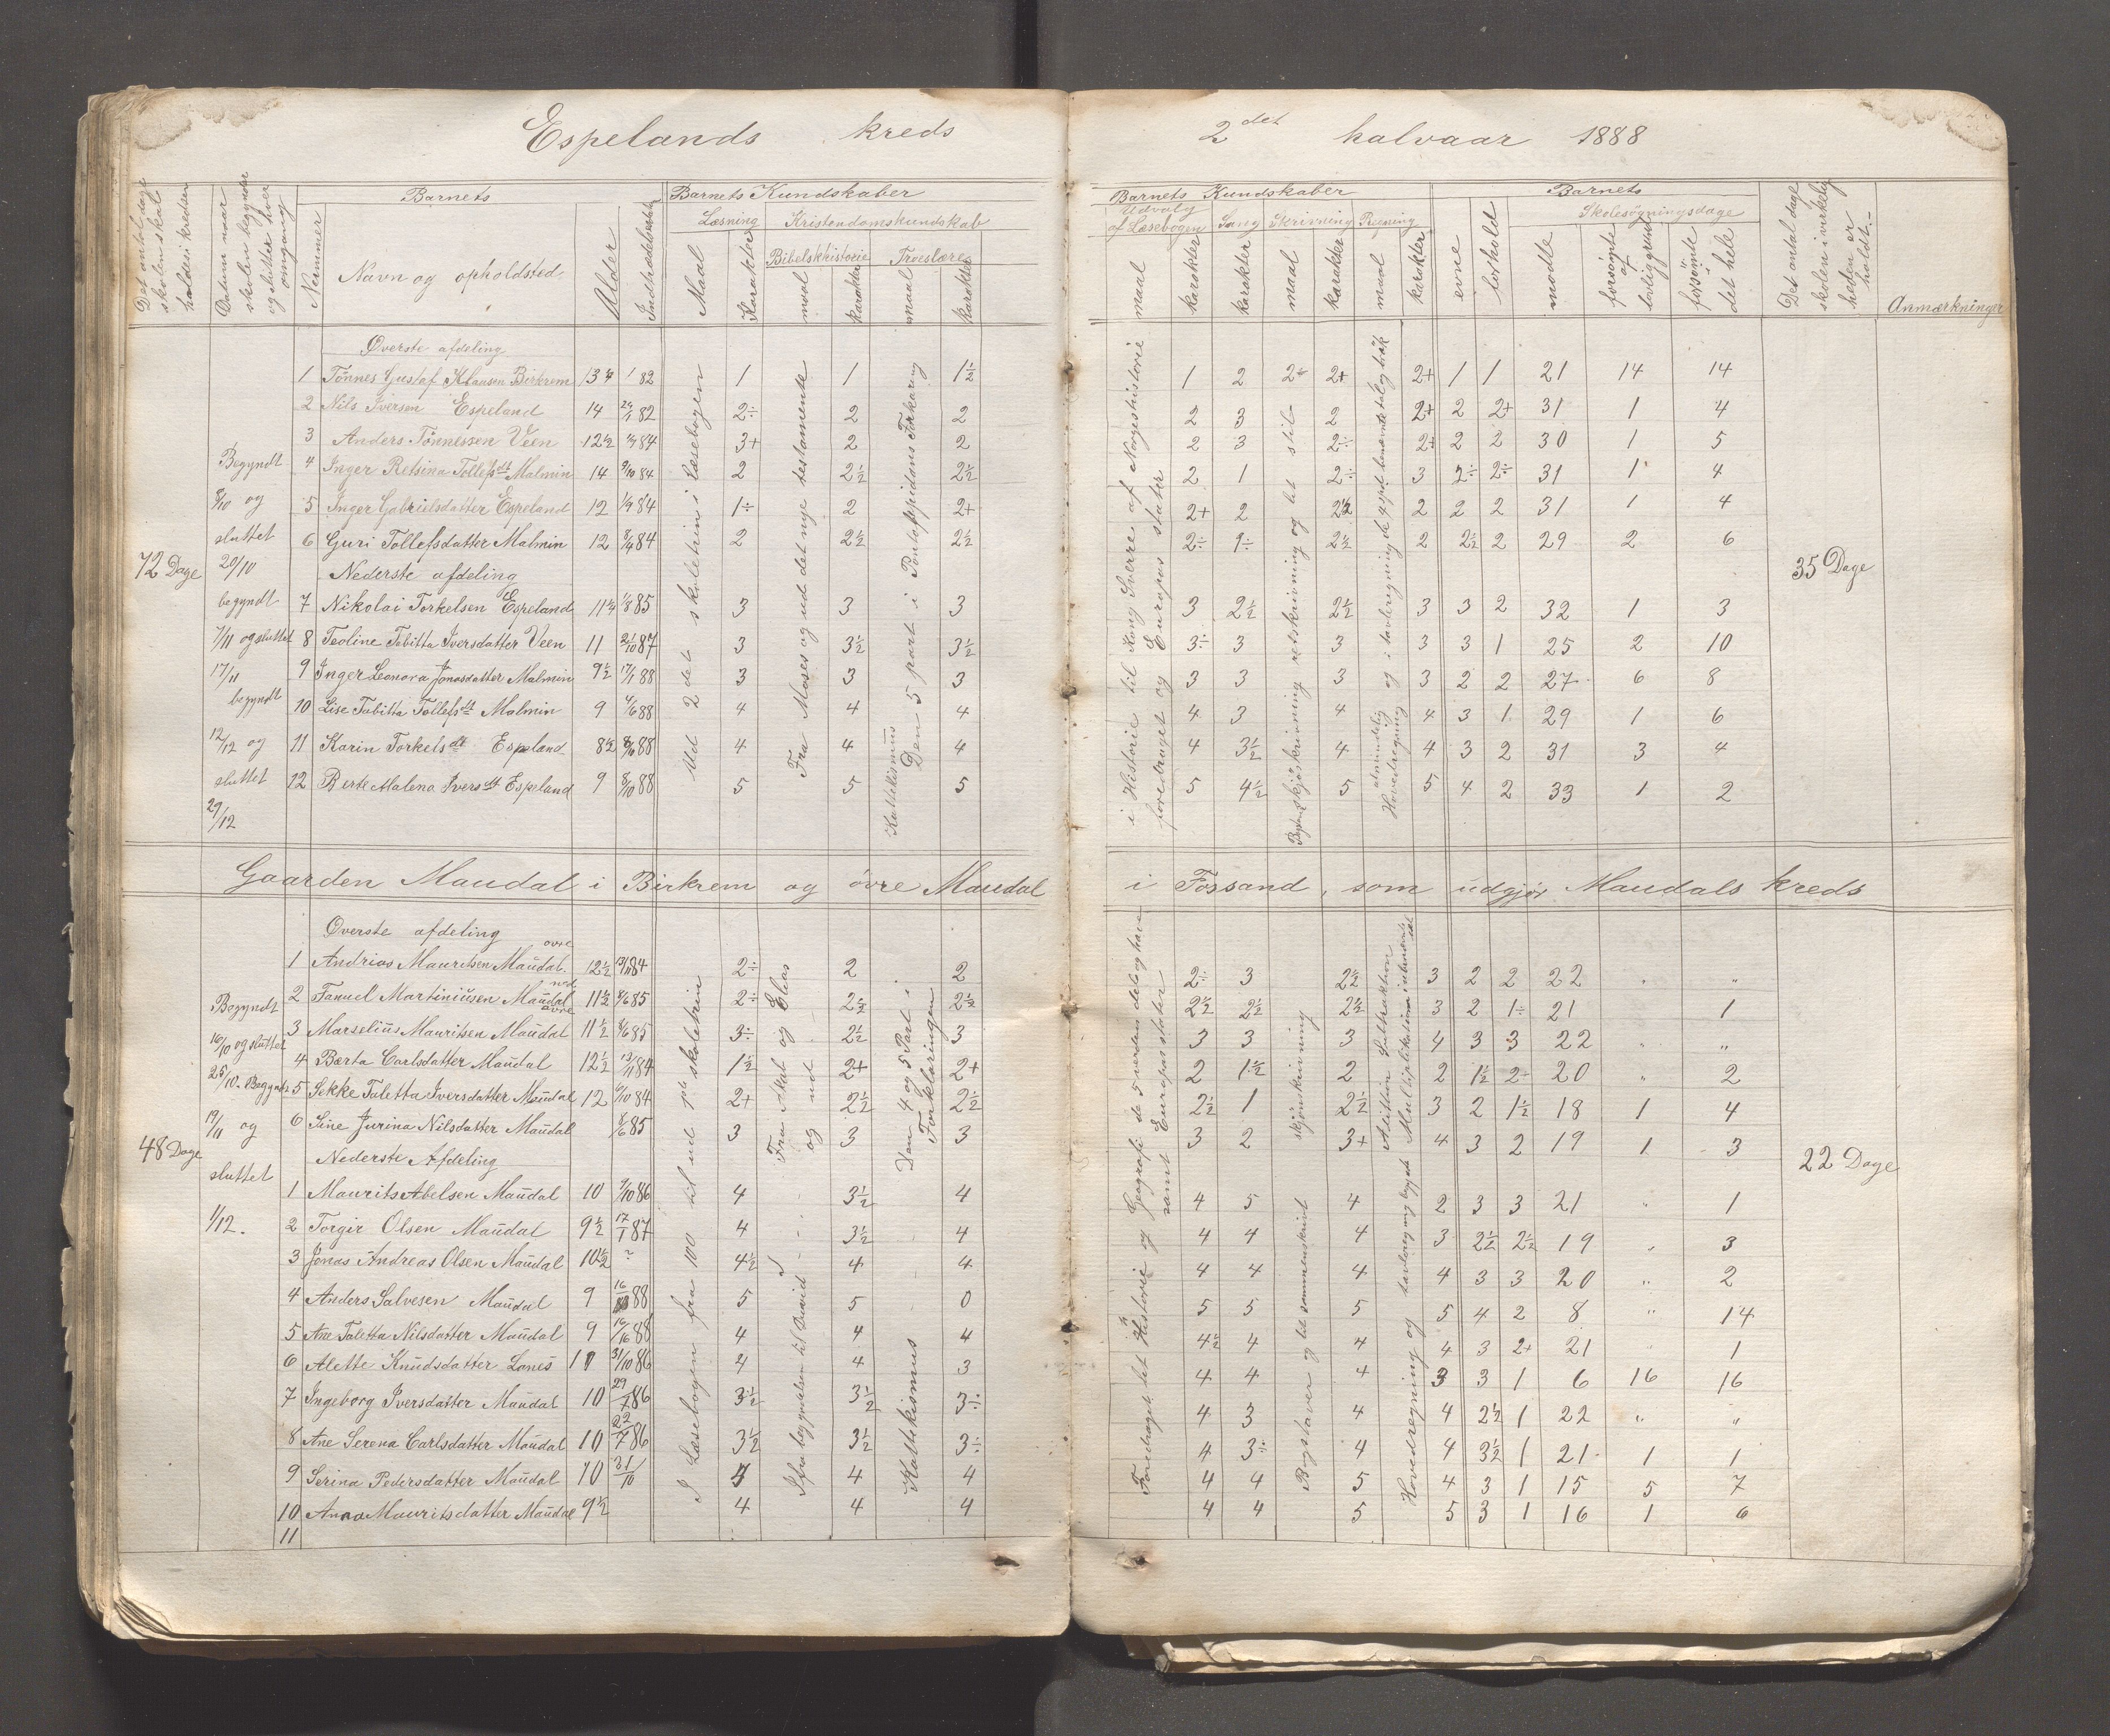 Espelands kreds 2det halvaar 1888
Det antal dage skolen skal holdes i kredsen
Datum naar skolen begynder og slutter hver omgang
Barnets
Nummer
Navn og opholdsted
Alder
Indtrædelsestid
Barnets Kundskaber
Læsning
Maal
Karakter
Kristendomskundskab
Bibelskhistorie
maal
karakter
Troeslære
maal
karakter
Barnets Kundskaber
Udvalg af Læsebogen
maal
karakter
Sang
karakter
Skrivning
maal
karakter
Regning
maal
karakter
Barnets
evne
forhold
Skolesøgningsdage
mødte
forsømte af lovlig grund
forsømte det hele
Det antal dage skolen i virkeligheden er holdt
Anmærkninger
72 Dage
Begyndt 8/10 og sluttet 20/10 begyndt 7/11 og sluttet 17/11 begyndt 12/12 og sluttet 29/12
Øverste afdeling
1 Tønnes Gustaf Klausen Birkrem 13 82 1 1 1½ 1 2 2+ 2+ 2+ 1 1 21 14 14
2 Nils Iversen Espeland 14 82 2÷ 2 2 2 3 2 2+ 2 2+ 31 1 4
3 Anders Tønnessen Veen 12½ 84 3+ 2 2 2 3 2÷ 2+ 2 2 30 1 5
4 Inger Retsina Tollefsdt Malmin 14 9/10 84 2 2½ 2½ 2 1 2÷ 3 2÷ 2÷ 31 1 4
5 Inger Gabrielsdatter Espeland 12 84 1÷ 2 2+ 2+ 2 2½ 2 2 2 31 1 4
6 Guri Tollefsdatter Malmin 12 84 2 2½ 2½ 2÷ 1÷ 2½ 2 2½ 2 29 2 6
Nederste afdeling
7 Nikolai Torkelsen Espeland 11¼ 85 3 3 3 3 2½ 2½ 3 3 2 32 1 3
8 Teoline Tobitta Iversdatter Veen 11 87 3 3½ 3½ 3÷ 3 3 3 3 1 25 2 10
9 Inger Leonora Jonasdatter Malmin 9½ 17/1 88 3 3 3 3 3 3 3 2 2 27 6 8
10 Lise Tobitta Tollefsdt Malmin 9 88 4 4 4 4 3 4 4 3 1 29 1 6
11 Karin Torkelsdt Espeland 8½ 88 4 4 4 4 3½ 4 4 3 2 31 3 4
12 Berte Malena Iversdt Espeland 9 8/10 88 5 5 5 5 4½ 5 5 4 2 33 1 2
Ud 2det skoletrin i Læsebogen
Fra Moses og ud det nye testamente
Katekismus Den 5 part i Pontoppidans Forklaring
i Historie til Kong Sverre af Norgeshistorie foredraget og Europas stater
skjønskrivning retskrivning og let stil
Hovedregning og i tavleregning de 4 spd. benævnte tal og brøk
35 Dage
Gaarden Maudal i Birkrem og øvre Maudal i Fossand, som udgjør Maudals kreds
48 Dage
Begyndt 16/10 og sluttet 25/10. Begyndt 19/11 og sluttet 1/12.
Øverste afdeling
1 Andrias Mauritsen Maudal øvre 12½ 13/11 84 2÷ 2 2 2÷ 3 2½ 3 2 2 22 " "
2 Tanuel Martiniusen Maudal ned 11½ 85 2÷ 2½ 2½ 2½ 2½ 2½ 3 2 1÷ 21 1
3 Marselius Mauritsen Maudal øvre 11½ 85 3÷ 2½ 3 3 3 3 4 3 3 22 " "
4 Bærta Carlsdatter Maudal 12½ 13/11 84 1½ 2+ 2+ 2 1½ 2 2 1½ 2÷ 20 " 2
5 Sekke Taletta Iversdatter Maudal 12 84 2+ 2½ 2½ 2½ 1 2½ 3 2 1½ 18 1 4
6 Sine Jurina Nilsdatter Maudal 85 3 3 3 3 2 3+ 4 3 2 19 1 3
Nederste Afdeling
1 Maurits Abelsen Maudal 10 86 4 3½ 4 4 5 4 2 3 3 21 " 1
2 Torgir Olsen Maudal 9½ 17/1 87 4 3½ 4 4 4 4 3 2½ 2½ 19 " 3
3 Jonas Andreas Olsen Maudal 10½ ? 4½ 4 4 4 4 4 4 3 3 20 " 2
4 Anders Salvesen Maudal 9 88 5 5 0 5 5 5 5 4 2 8 " 14
5 Ane Taletta Nilsdatter Maudal 9 88 4 4 4 4½ 4 4 4 3 2+ 21 " 1
6 Alette Knudsdatter Lones 11 31/10 86 4 4 3 4 4 4 3 3 1 6 16 16
7 Ingeborg Iversdatter Maudal 10 86 3½ 3½ 3÷ 4 3 4 4 2½ 1 22 " "
8 Ane Serena Carlsdatter Maudal 10 86 3½ 3½ 3÷ 4 3÷ 4 4 3½ 1 21 1 1
9 Serina Pedersdatter Maudal 10 31/10 4 4 4 4 5 4 3 1 15 5 7
10 Anna Mauritsdatter Maudal 9½ 4 4 4 4 4 5 5 3 1 16 1 6
11
I Læsebogen fra 100 til ud 1ste skoletrin
Ifra begyndelsen til David
Fra Akab og Elias og ud
Katekismus
Den 4 og 5 Part i Forklaringen
Foredraget let Historie og Geografi de 5 verdensdele og have samt Europas stater
Bogstaver og let sammenskrivt
skjønskrivning
Hovedregning og tavleregning Multiplikation Subtraktion
22 Dage